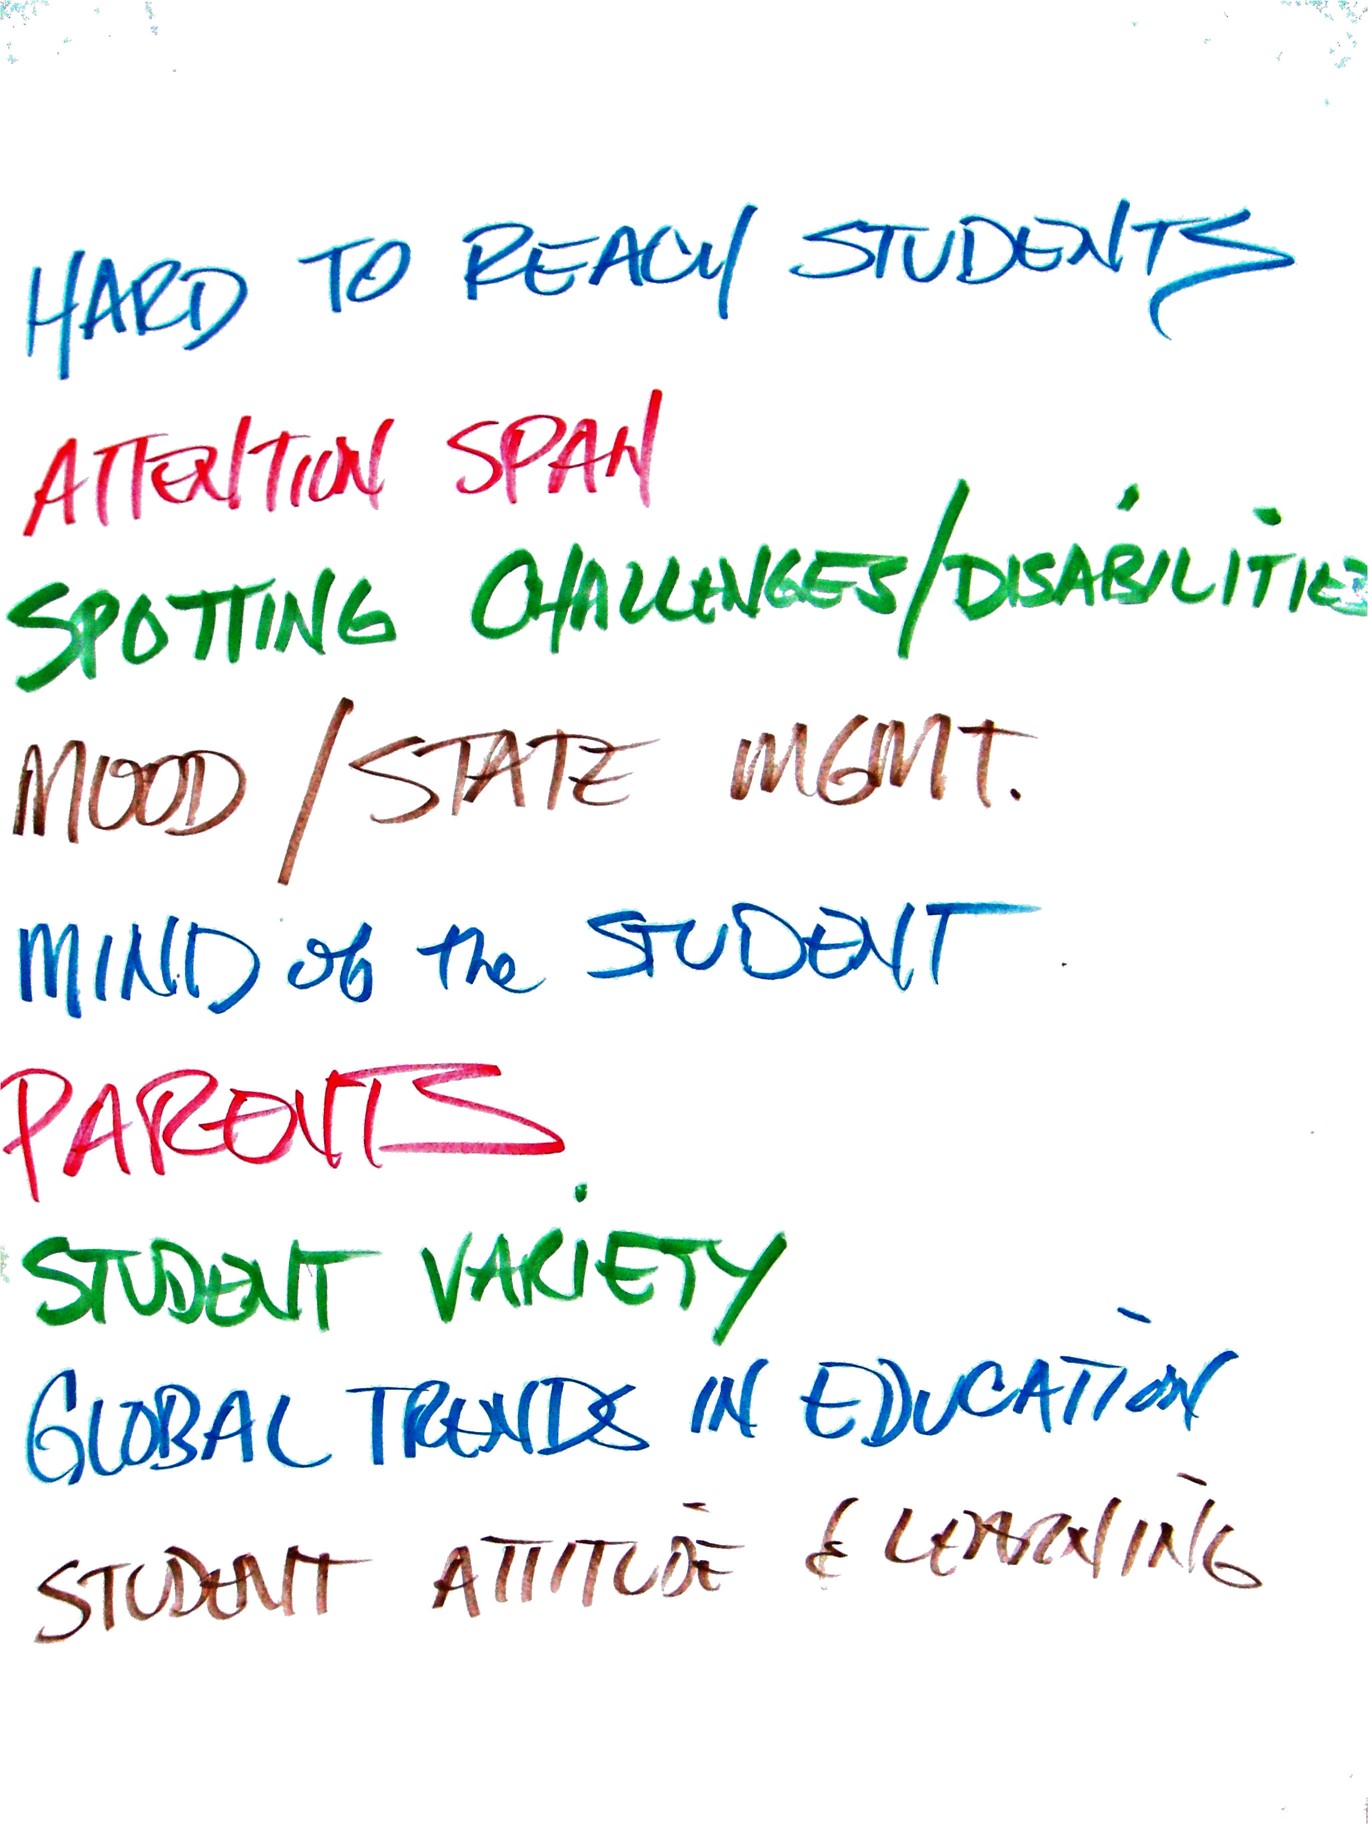 HARD TO REACH STUDENTS
ATTENTION SPAN
SPOTTING CHALLENGES/DISABILITIES
MOOD / STATE MGMT.
MIND of the STUDENT
PARENTS
STUDENT VARIETY
GLOBAL TRENDS IN EDUCATION
STUDENT ATTITUDE & LEARNING